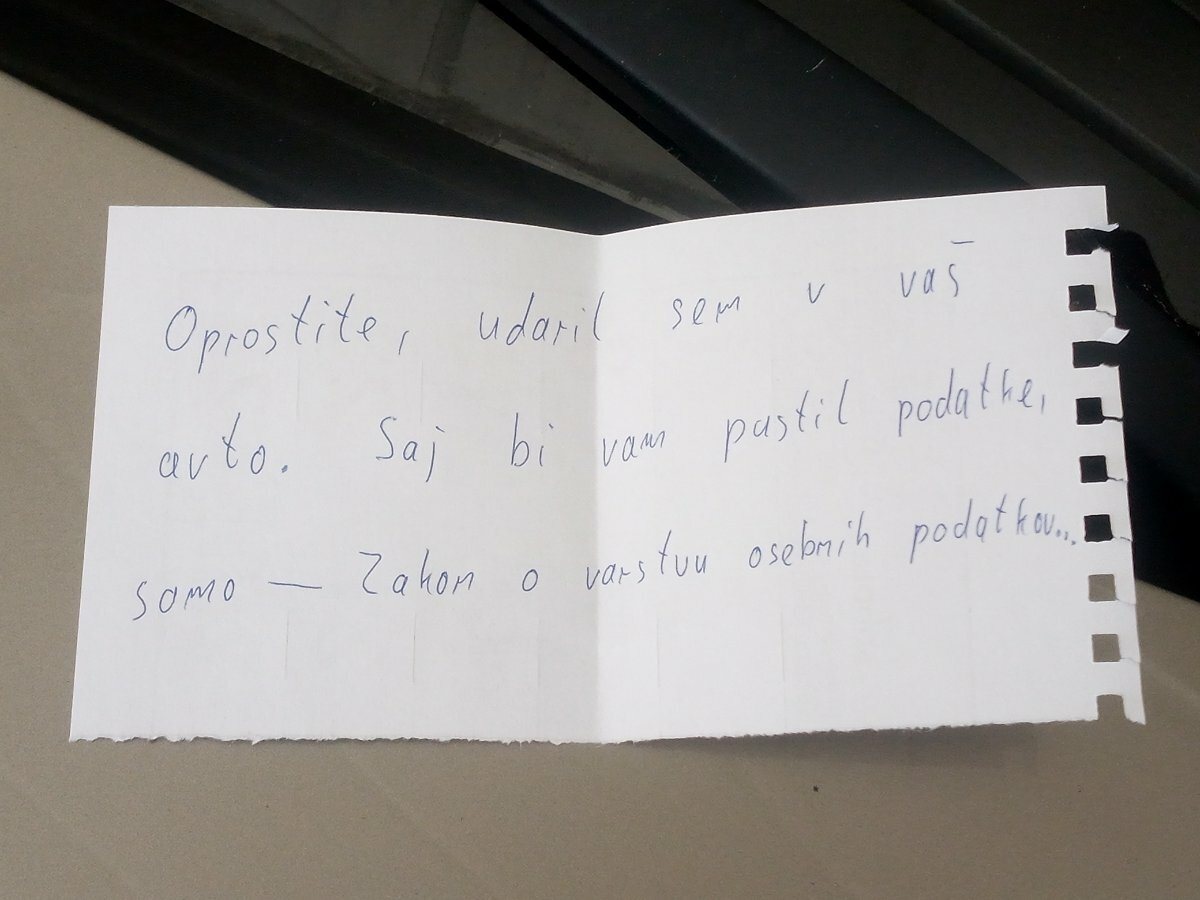 Oprostite, udaril sem v vaš
avto. Saj bi vam pustil podatke,
samo — Zakon o varstvu osebnih podatkov...